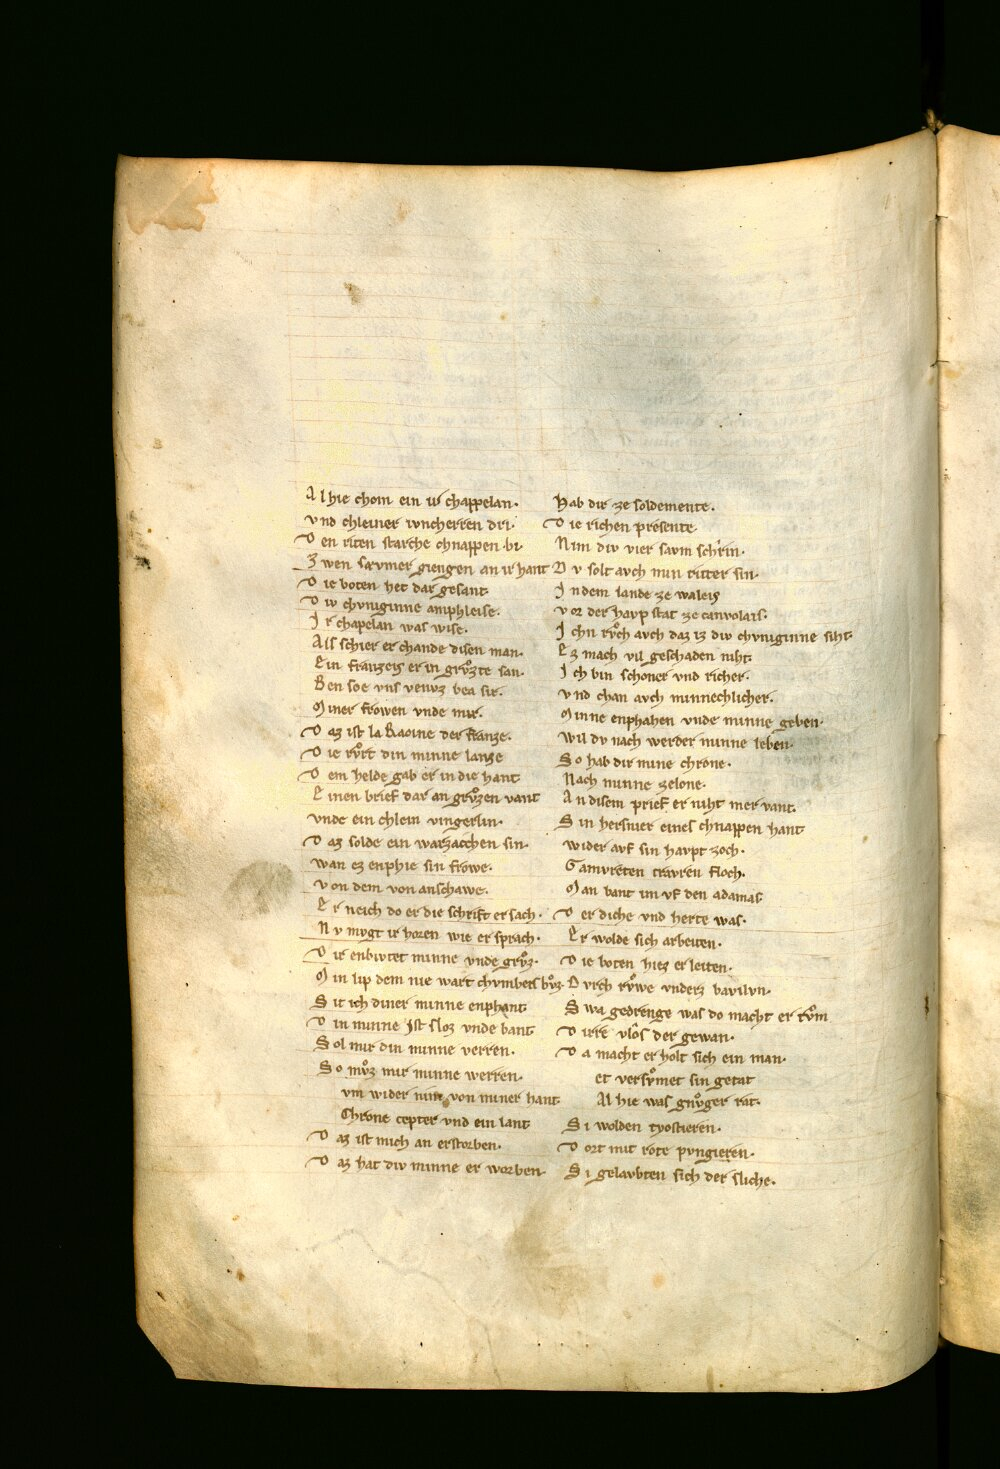 Al hie chom ein ir chappelan·
vnd chleiner ivncherren dri·
Den riten starche chnappen bi·
Zwen sævmer giengen an ir hant
Die boten het dar gesant·
Div chvniginne amphleise·
Ir chapelan was wise·
Als schier er chande disen man·
Ein franzeis er in grvͦzte san·
Ben soe vns venvz bea sir·
Miner frowen vnde mir·
Daz ist la Raoine der franze·
Die rvͤrt din minne lanze
Dem helde gab er in die hant
Einen brief dar an grvͦzen vant
vnde ein chlein vingerlin·
Daz solde ein warzæichen sin·
wan ez enphie sin frowe·
von dem von anschawe·
Er neich do er die schrift ersach·
Nv mvgt ir horen wie er sprach·
Dir enbivtet minne vnde grvͦz·
Min lip dem nie wart chvmbers bvͦz
Sit ich diner minne enphant
Din minne Ist sloz vnde bant
Sol mir din minne verren·
So mvͦz mir minne werren·
vm wider nim von miner hant·
Chrone cepter vnd ein lant
Daz ist mich an erstorben·
Daz hat div minne erworben·
Hab dir ze soldemente·
Die richen presente·
Nim div vier savm schrin·
Dv solt avch min ritter sin·
In dem lande ze waleis
vor der havp stat ze canvolais·
Ichn rvͦch avch daz iz div chvniginne siht·
Ez mach vil geschaden niht·
Ich bin schoner vnd richer·
vnd chan avch minnechlicher·
Minne enphahen vnde minne geben·
wil dv nach werder minne leben·
So hab dir mine chrone·
Nach minne zelone·
An disem prief er niht mer vant·
Sin hersnier eines chnappen hant
wider avf sin havpt zoch·
Gamvreten travren floch·
Man bant im vf den adamas
Der diche vnd herte was·
Er wolde sich arbeiten·
Die boten hiez er leiten·
Dvrch rvͦwe vnderz bavilvn·
Swa gedrenge was do macht er rvͦm
Dirre vlôs der gewan·
Da macht er holt sich ein man·
et versvͦmet sin getat
Al hie was gnvͦger rat·
Si wolden tyostieren·
Dort mit rote pvngieren·
Si gelavbten sich der sliche·